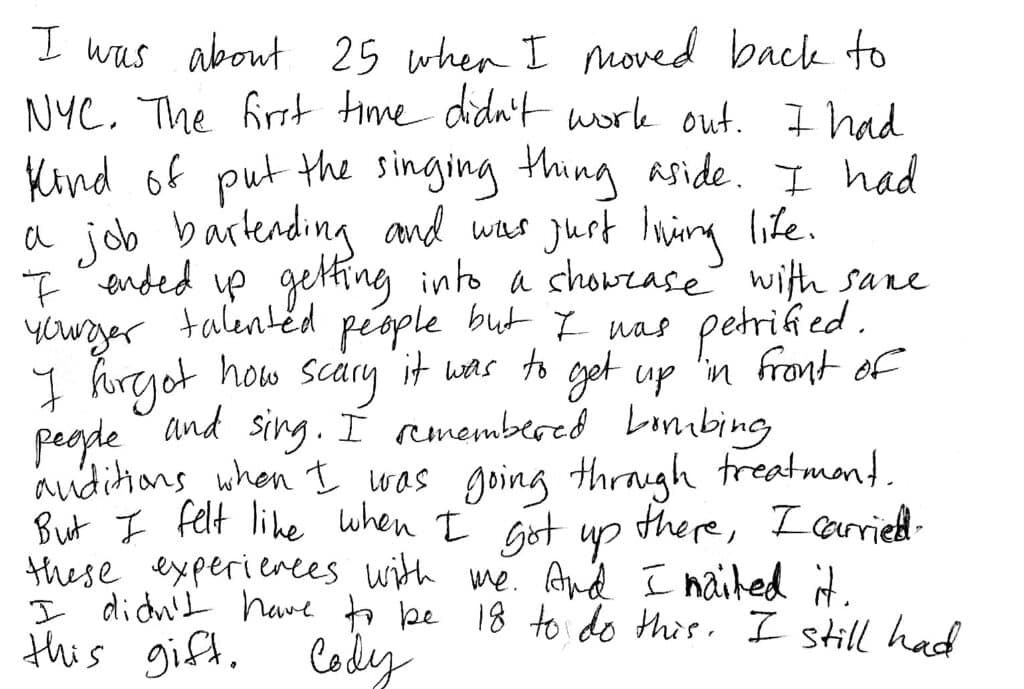 I was about 25 when I moved back to
NYC. The first time didn't work out. I had
Kind of put the singing thing aside. I had
a job bartending and was just living life.
I ended up getting into a showcase with some
younger talented people but I was petrified.
I forgot how scary it was to get up in front of
people and sing. I remembered bombing
auditions when I was going through treatment.
But I felt like when I got up there, I carried
these experiences with me. And I nailed it.
I didn't have to be 18 to do this. I still had
this gift. Cody